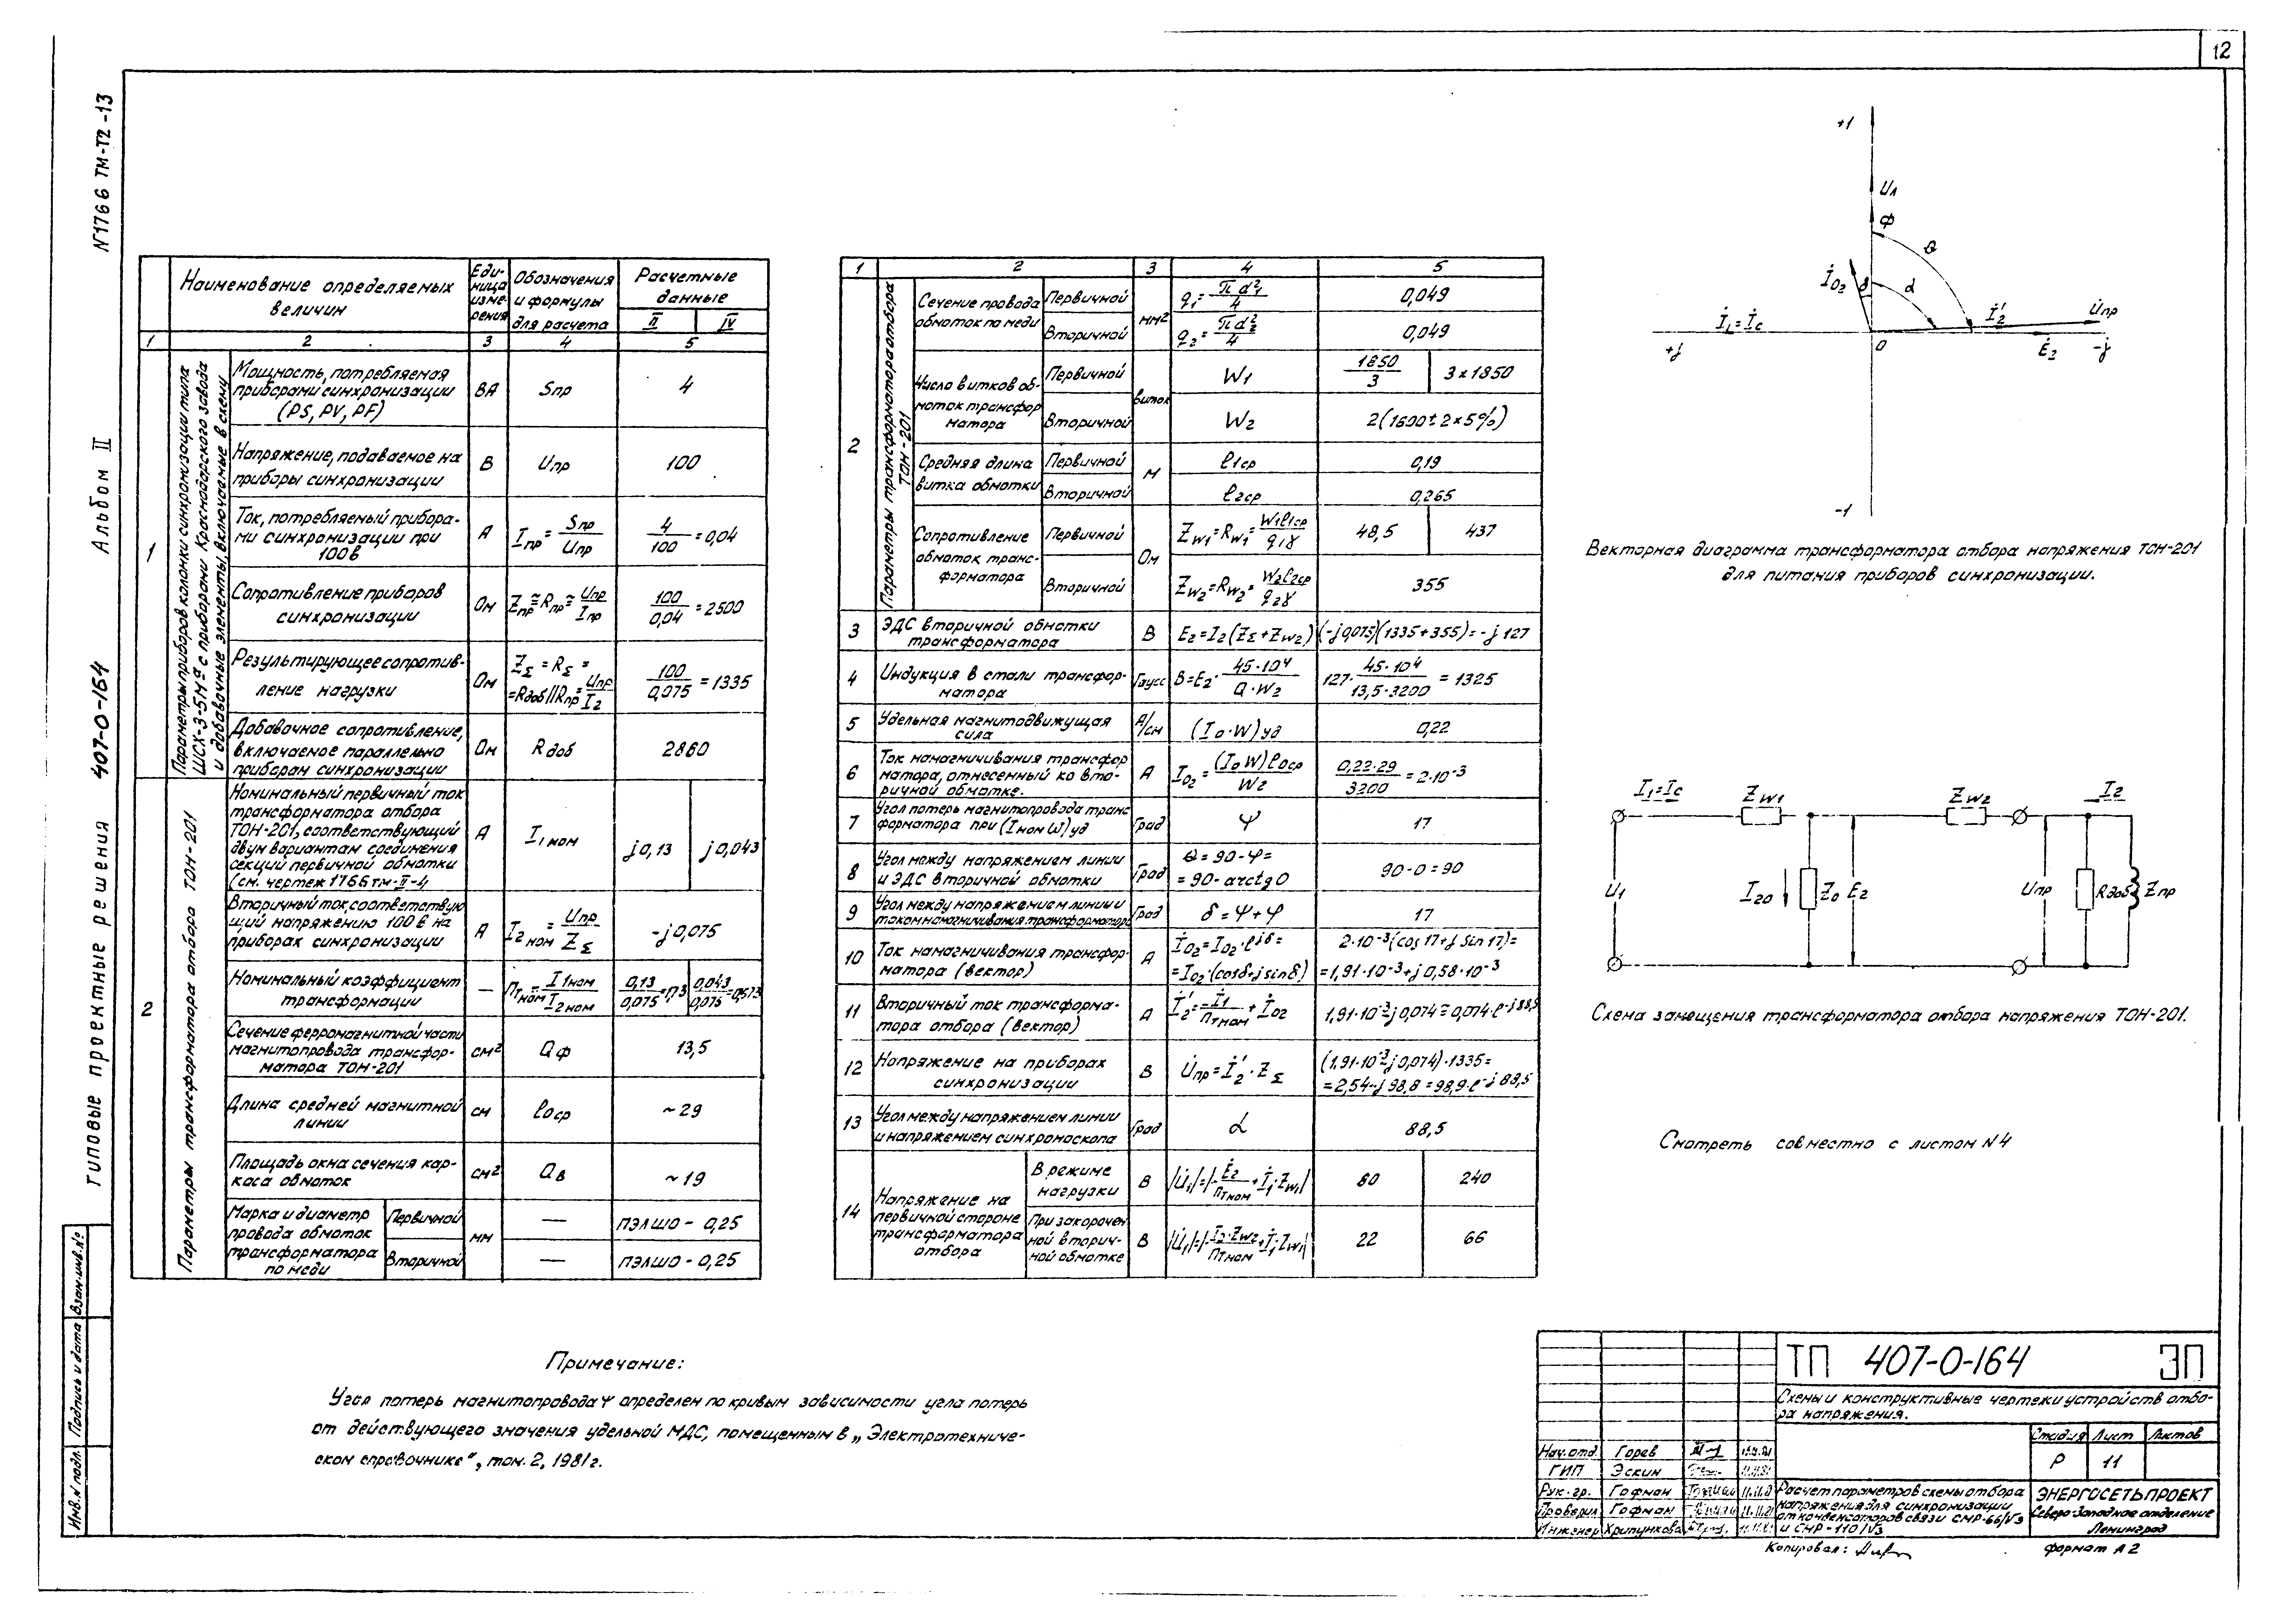 12
N1766 ТМ-Т2-13
Альбом II
407-0-164
Типовые проектные решения
Инв.N подл.
Подпись и дата
Взам.инв.№
Наименование определяемых величин
Еди-
ница
изме-
рения
Обозначения
и формулы
для расчета
Расчетные
данные
II
IV
1 2 3 4 5
1
Параметры приборов колонки синхронизации типа
ШСХ-3-5М с приборами Краснодарского завода
и добавочные элементы, включаемые в схему
Мощность, потребляемая
приборами синхронизации
(PS, PV, PF)
ВА
Sпр
4
Напряжение, подаваемое на
приборы синхронизации
В
Uпр
100
Ток, потребляемый прибора-
ми синхронизации при
100в
А
Iпр = Sпр/Uпр
4/100 = 0,04
Сопротивление приборов
синхронизации
Ом
Zпр ≅ Rпр ≅ Uпр/Iпр
100/0,04 = 2500
Результирующее сопротив-
ление нагрузки
Ом
ZΣ = RΣ =
= Rдоб//Rпр = Uпр/I2
100/0,075 = 1335
Добавочное сопротивление,
включаемое параллельно
приборам синхронизации
Ом
Rдоб
2860
2
Параметры трансформатора отбора ТОН-201
Номинальный первичный ток
трансформатора отбора
ТОН-201, соответствующий
двум вариантам соединения
секций первичной обмотки
(см. чертеж 1766тм-II-4)
А
I1ном
j0,13
j0,043
Вторичный ток, соответствую
щий напряжению 100 в на
приборах синхронизации
А
I2ном = Uпр/ZΣ
-j0,075
Номинальный коэффициент
трансформации
—
Пт ном = I1ном/I2ном
0,13/0,075 = 1,73
0,043/0,075 = 0,573
Сечение ферромагнитной части
магнитопровода трансфор-
матора ТОН-201
см²
Qф
13,5
Длина средней магнитной
линии
см
lоср
~29
Площадь окна сечения кар-
каса обмоток
см²
Qв
~19
Марка и диаметр
провода обмоток
трансформатора
по меди
Первичной
мм
—
ПЭЛШО - 0,25
Вторичной
—
ПЭЛШО - 0,25
1 2 3 4 5
2
Параметры трансформатора отбора
ТОН-201
Сечение провода
обмоток по меди
Первичной
мм²
q1 = πd²1/4
0,049
Вторичной
q2 = πd²2/4
0,049
Число витков об-
моток трансфор
матора
Первичной
виток
W1
1850/3
3×1850
Вторичной
W2
2(1600±2×5%)
Средняя длина
витка обмотки
Первичной
м
l1ср
0,19
Вторичной
l2ср
0,265
Сопротивление
обмоток транс-
форматора
Первичной
Ом
Zw1 = Rw1 = W1l1ср/q1γ
48,5
437
Вторичной
Zw2 = Rw2 = W2l2ср/q2γ
355
3
ЭДС вторичной обмотки
трансформатора
В
E2 = I2(ZΣ+Zw2)
(-j0,075)(1335+355) = -j127
4
Индукция в стали трансфор-
матора
Гаусс
B = E2 · 45·10⁴/Q·W2
127 · 45·10⁴/13,5·3200 = 1325
5
Удельная магнитодвижущая
сила
А/см
(I0·W)уд
0,22
6
Ток намагничивания трансфор
матора, отнесенный ко вто-
ричной обмотке.
А
I02 = (I0W)l0ср/W2
0,22·29/3200 = 2·10⁻³
7
Угол потерь магнитопровода транс
форматора при (Iном W)уд
Град
Ψ
17
8
Угол между напряжением линии
и ЭДС вторичной обмотки
Град
θ = 90-φ =
= 90-arctg0
90-0 = 90
9
Угол между напряжением линии и
током намагничивания трансформатора
Град
δ = Ψ+φ
17
10
Ток намагничивания трансфор-
матора (вектор)
А
İ02 = I02·e^jδ =
= I02·(cosδ+jsinδ)
2·10⁻³(cos17+j sin17) =
= 1,91·10⁻³+j0,58·10⁻³
11
Вторичный ток трансформа-
тора отбора (вектор)
А
İ'2 = -İ1/Пт ном + İ02
1,91·10⁻³-j0,074 = 0,074·e^-j88,5
12
Напряжение на приборах
синхронизации
В
U̇пр = İ'2·ZΣ
(1,91·10⁻³-j0,074)·1335 =
= 2,54-j98,8 = 98,9·e^-j88,5
13
Угол между напряжением линии
и напряжением синхроноскопа
Град
α
88,5
14
Напряжение на
первичной стороне
трансформатора
отбора
В режиме
нагрузки
В
|U̇1| = |Ė2/Пт ном + İ1·Zw1|
80
240
При закорочен
ной вторич-
ной обмотке
В
|U̇1| = |İ2·Zw2/Пт ном + İ1·Zw1|
22
66
+1
Uл
Ф
θ
İ02
δ
α
İ1=İс
İ'2
U̇пр
+j
0
Ė2
-j
-1
Векторная диаграмма трансформатора отбора напряжения ТОН-201
для питания приборов синхронизации.
I1=Iс
Zw1
Zw2
I2
U1
I20
Z0
E2
Uпр
Rдоб
Zпр
Схема замещения трансформатора отбора напряжения ТОН-201.
Смотреть совместно с листом N4
Примечание:
Угол потерь магнитопровода Ψ определен по кривым зависимости угла потерь
от действующего значения удельной МДС, помещенным в „Электротехниче-
ском справочнике", том. 2, 1981г.
ТП 407-0-164 ЭП
Схемы и конструктивные чертежи устройств отбо-
ра напряжения.
Стадия Лист Листов
Р 11
Нач.отд. Горев
ГИП Эскин
Рук.гр. Гофман
Проверил Гофман
Инженер Хрипункова
Расчет параметров схемы отбора
напряжения для синхронизации
от конденсаторов связи СМР-66/√3
и СМР-110/√3
ЭНЕРГОСЕТЬПРОЕКТ
Северо-Западное отделение
Ленинград
Копировал:
формат А2